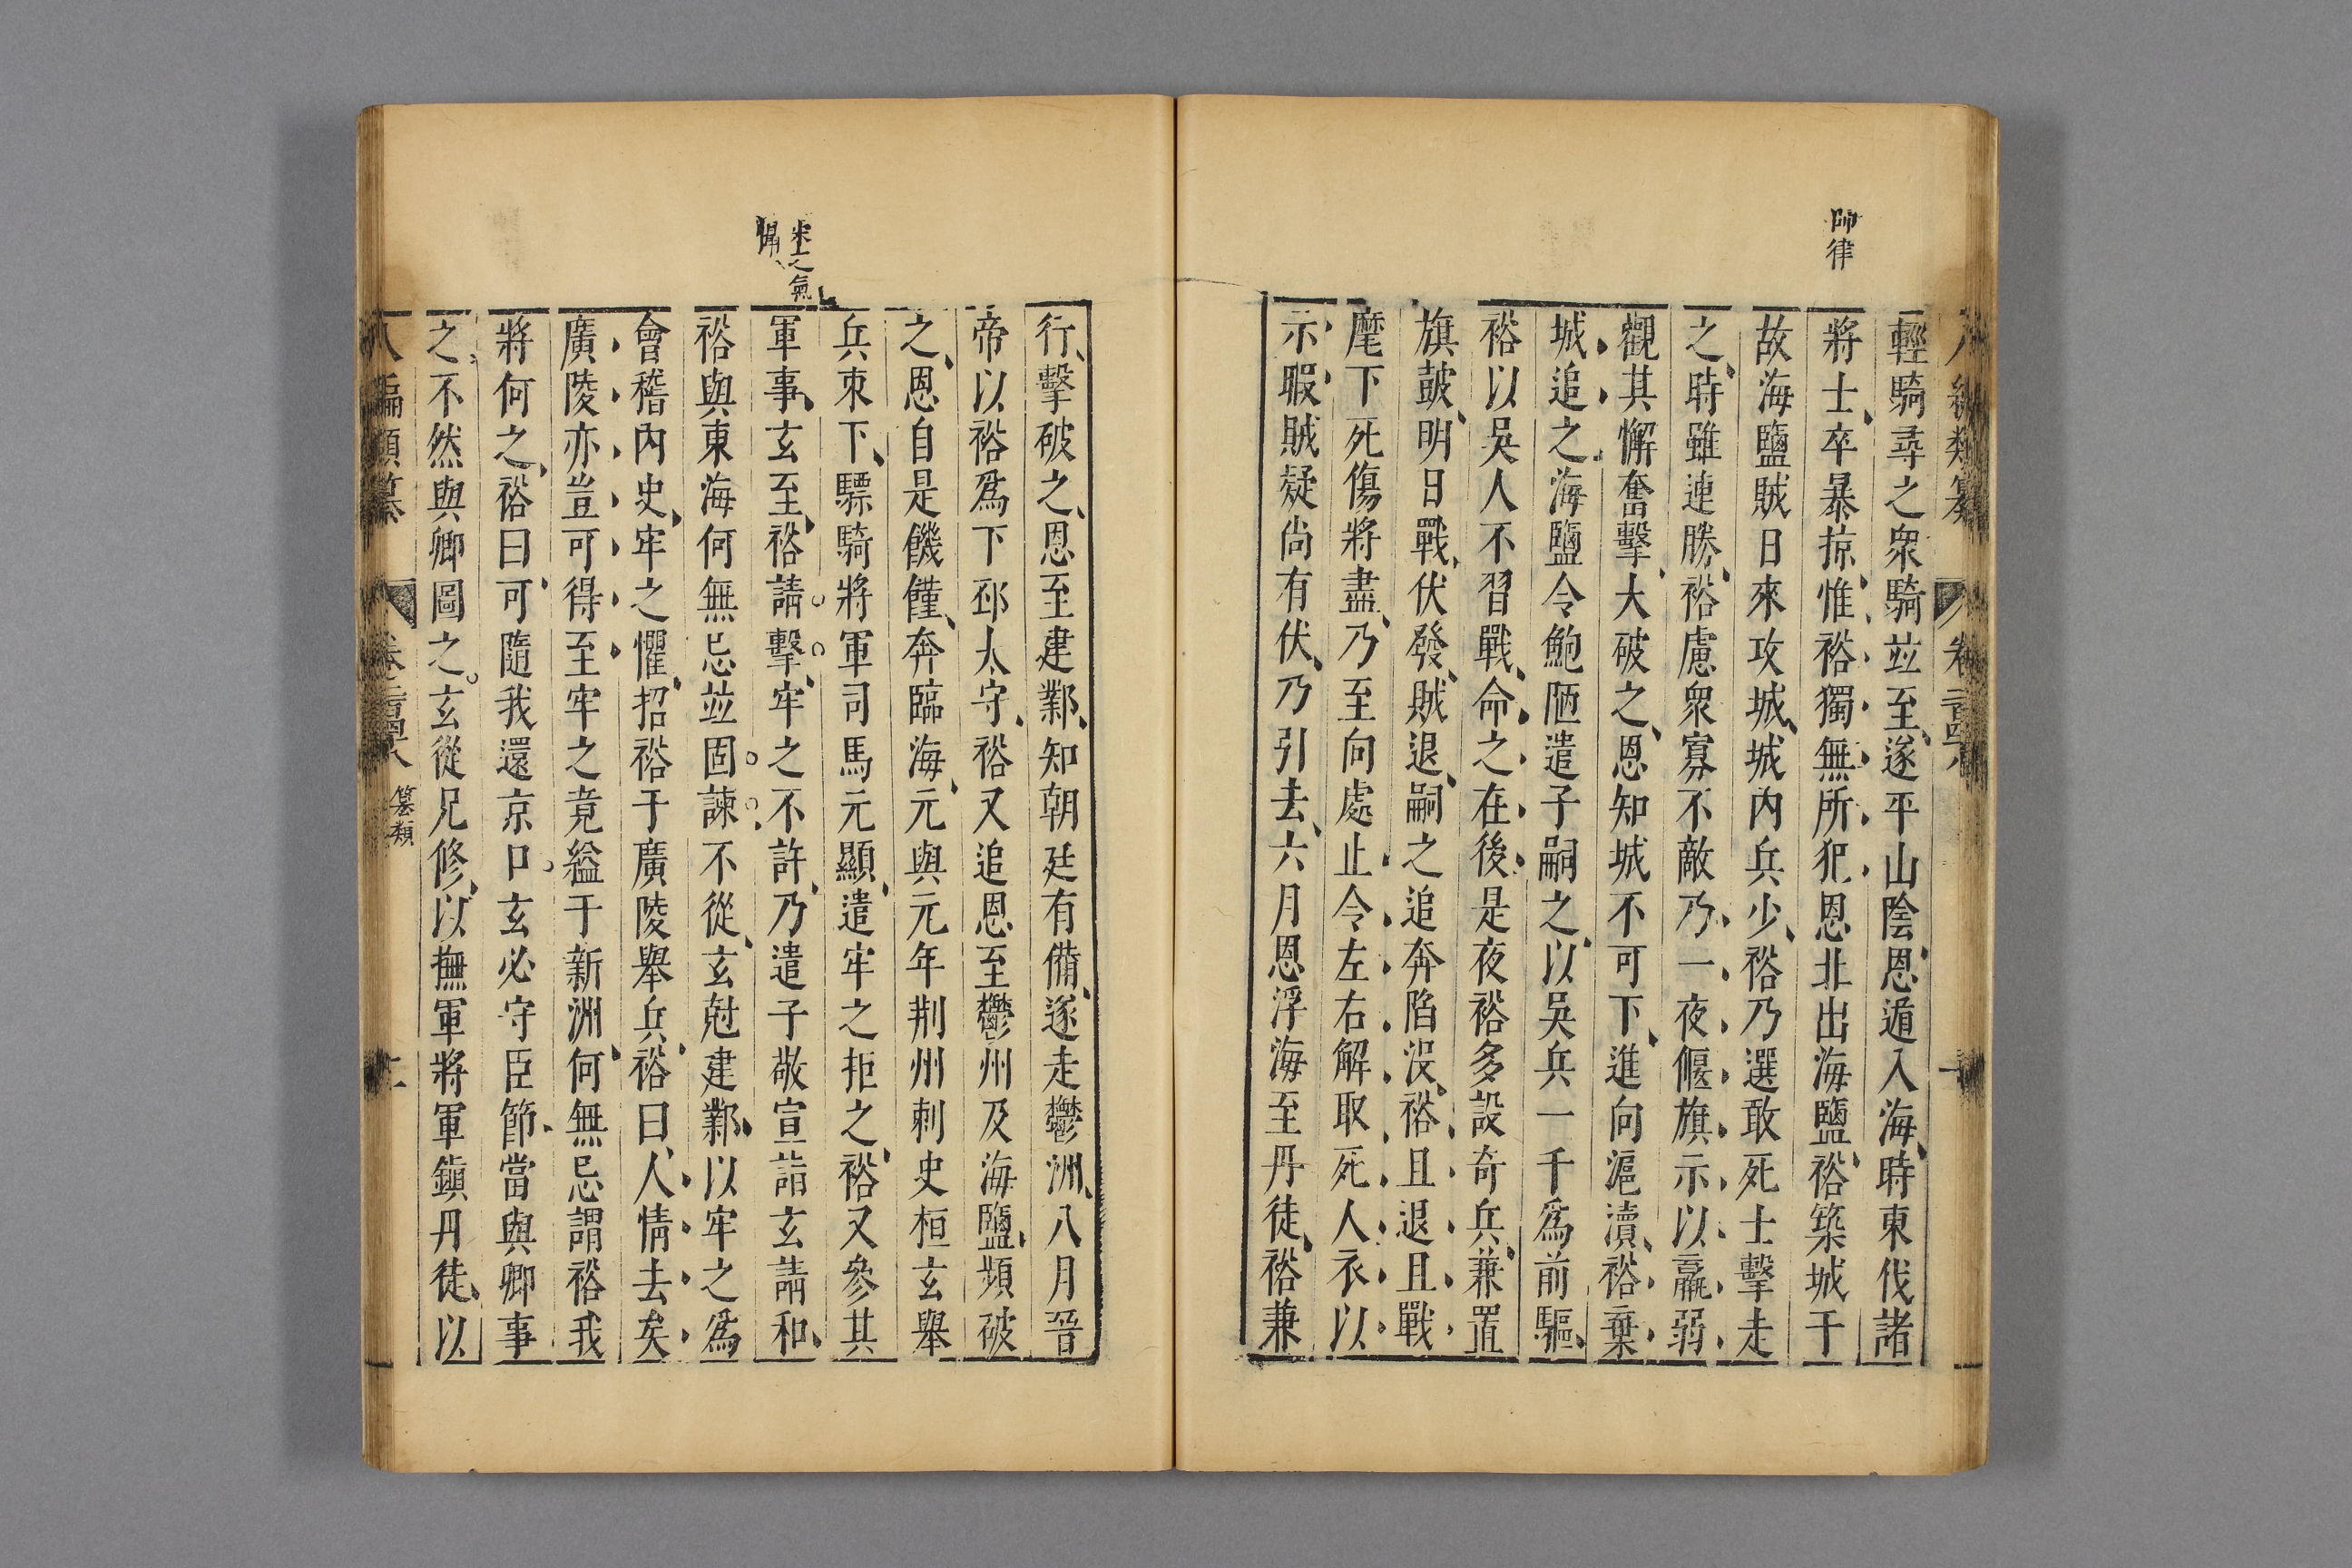 師律
輕騎尋之衆騎並至遂平山陰恩遁入海時東伐諸
將士卒暴掠惟裕獨無所犯恩北出海鹽裕築城于
故海鹽賊日來攻城城內兵少裕乃選敢死士擊走
之時雖連勝裕慮衆寡不敵乃一夜偃旗示以羸弱
觀其懈奮擊大破之恩知城不可下進向滬瀆裕棄
城追之海鹽令鮑陋遣子嗣之以吳兵一千爲前驅
裕以吳人不習戰命之在後是夜裕多設奇兵兼置
旗皷明日戰伏發賊退嗣之追奔陷没裕且退且戰
麾下死傷將盡乃至向處止令左右解取死人衣以
示暇賊疑尚有伏乃引去六月恩浮海至丹徒裕兼
行擊破之恩至建鄴知朝廷有備遂走鬱洲八月晉
帝以裕爲下邳太守裕又追恩至鬱州及海鹽頻破
之恩自是饑饉奔臨海元與元年荆州刺史桓玄舉
兵東下驃騎將軍司馬元顯遣牢之拒之裕又參其
軍事玄至裕請擊牢之不許乃遣子敬宣詣玄請和
裕與東海何無忌並固諫不從玄尅建鄴以牢之爲
會稽內史牢之懼招裕于廣陵舉兵裕曰人情去矣
廣陵亦豈可得至牢之竟縊于新洲何無忌謂裕我
將何之裕曰可隨我還京口玄必守臣節當與卿事
之不然與卿圖之玄從兄修以撫軍將軍鎭丹徒以
八編類纂
篡類